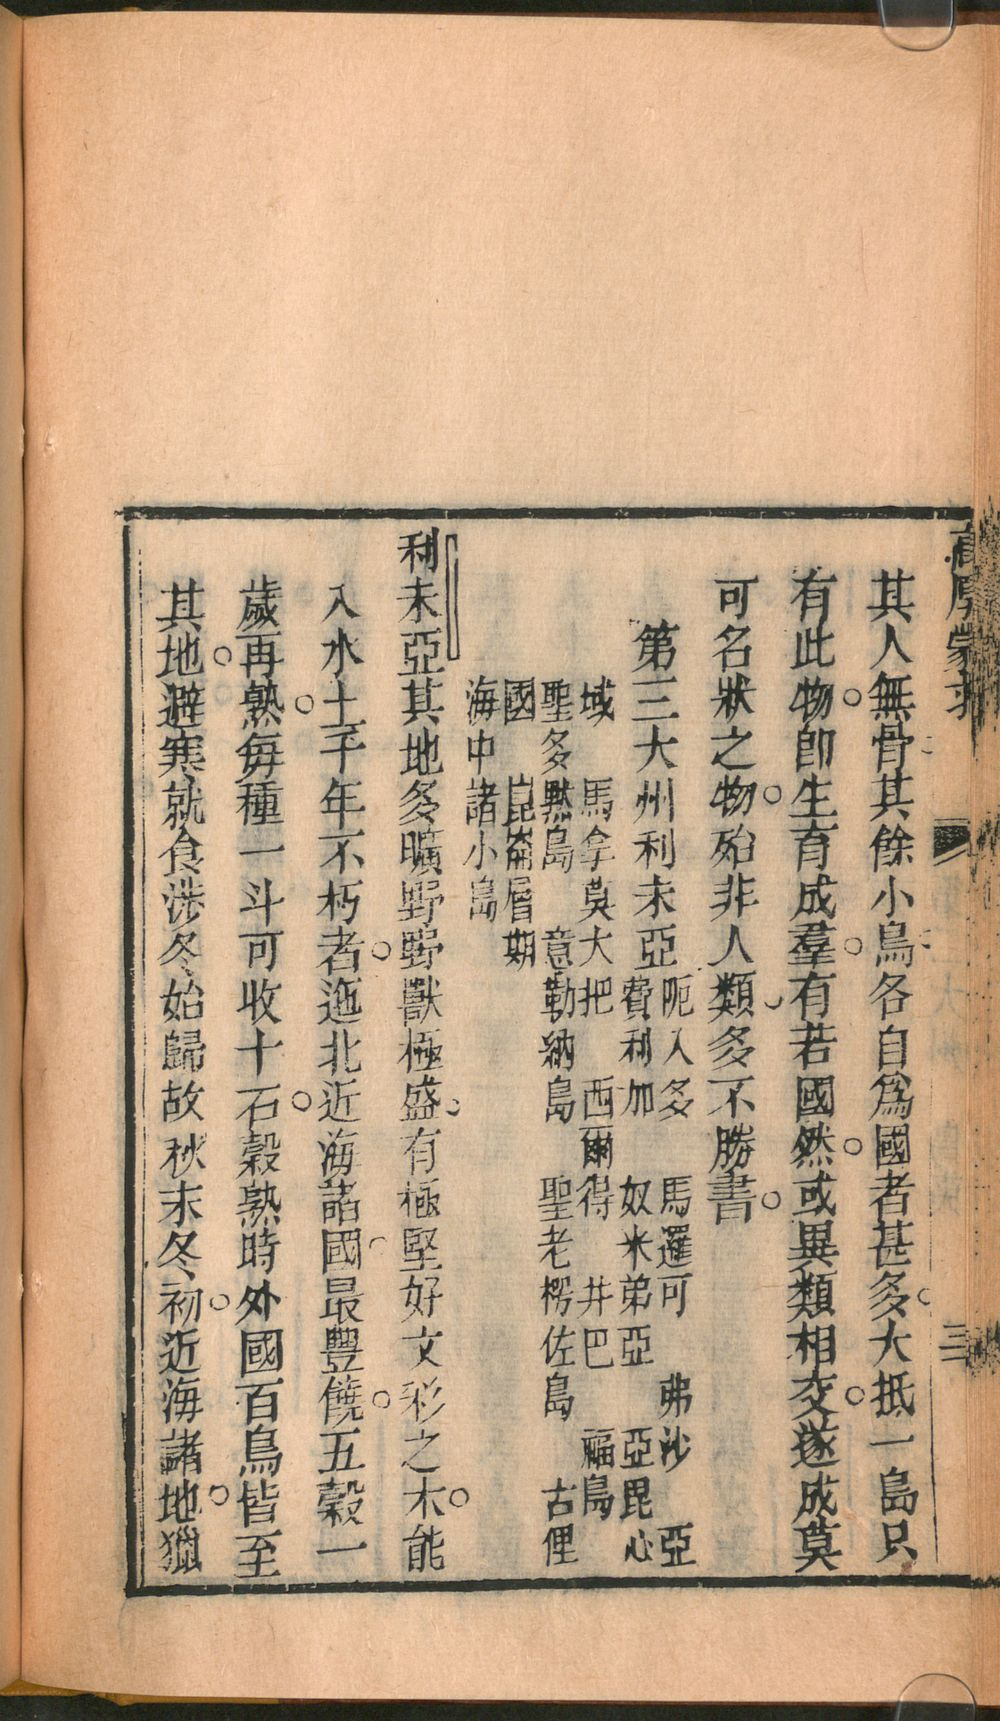 高厚蒙求
三
其人無骨其餘小島各自爲國者甚多大抵一島只
有此物卽生育成羣有若國然或異類相交遂成莫
可名狀之物殆非人類多不勝書
第三大州利未亞
阨入多 馬邏可 弗沙 亞
費利加 奴米弟亞 亞毘心
域 馬拿莫大把 西爾得 井巴 福島
聖多黙島 意勒納島 聖老楞佐島 古俚
國 崑崙層期
海中諸小島
利未亞其地多曠野野獸極盛有極堅好文彩之木能
入水土千年不朽者迤北近海諸國最豐饒五穀一
歲再熟每種一斗可收十石穀熟時外國百鳥皆至
其地避寒就食涉冬始歸故秋末冬初近海諸地獵